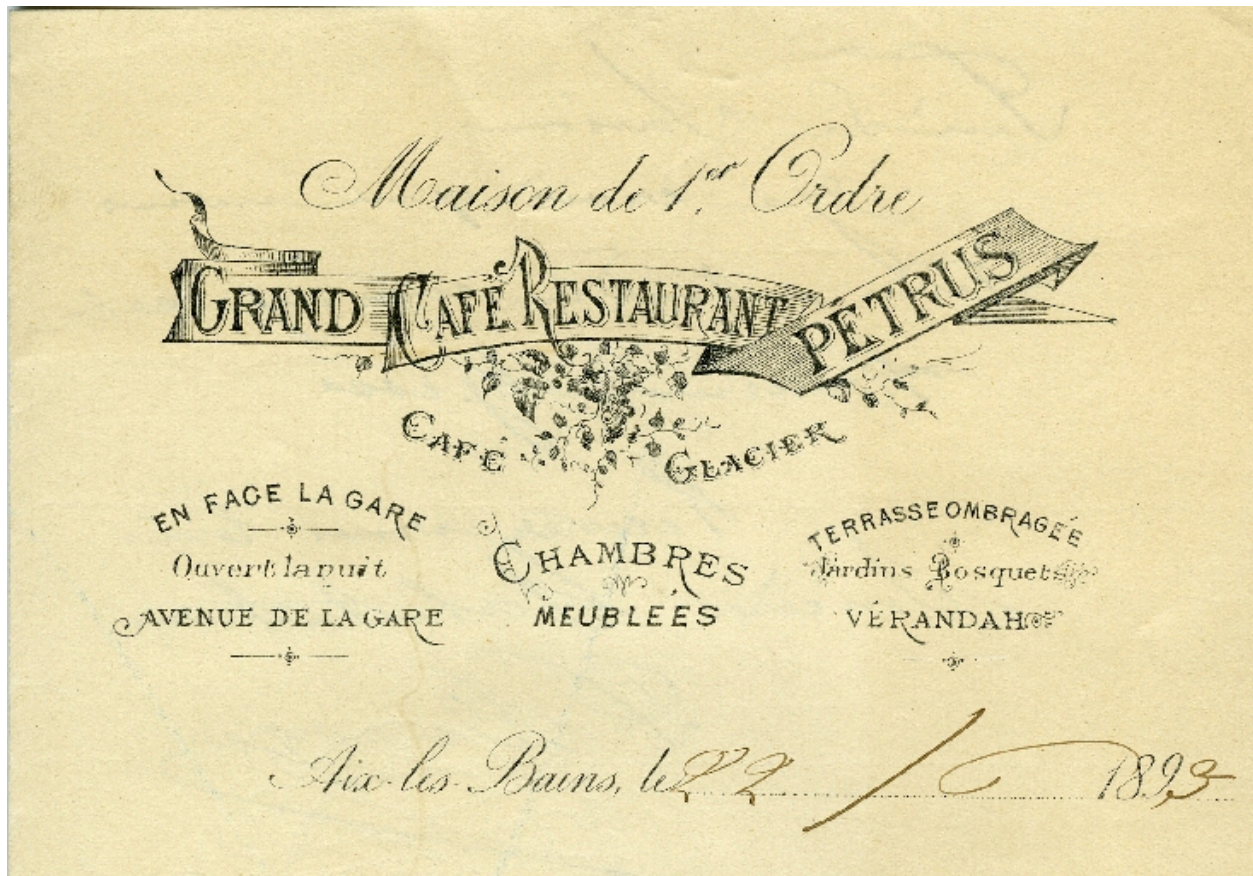 Maison de 1er. Ordre
GRAND CAFÉ RESTAURANT PETRUS
CAFÉ GLACIER
EN FACE LA GARE
Ouvert la nuit
AVENUE DE LA GARE
CHAMBRES
MEUBLÉES
TERRASSE OMBRAGÉE
Jardins Bosquets
VÉRANDAH
Aix-les-Bains, le 22 / 6 1893